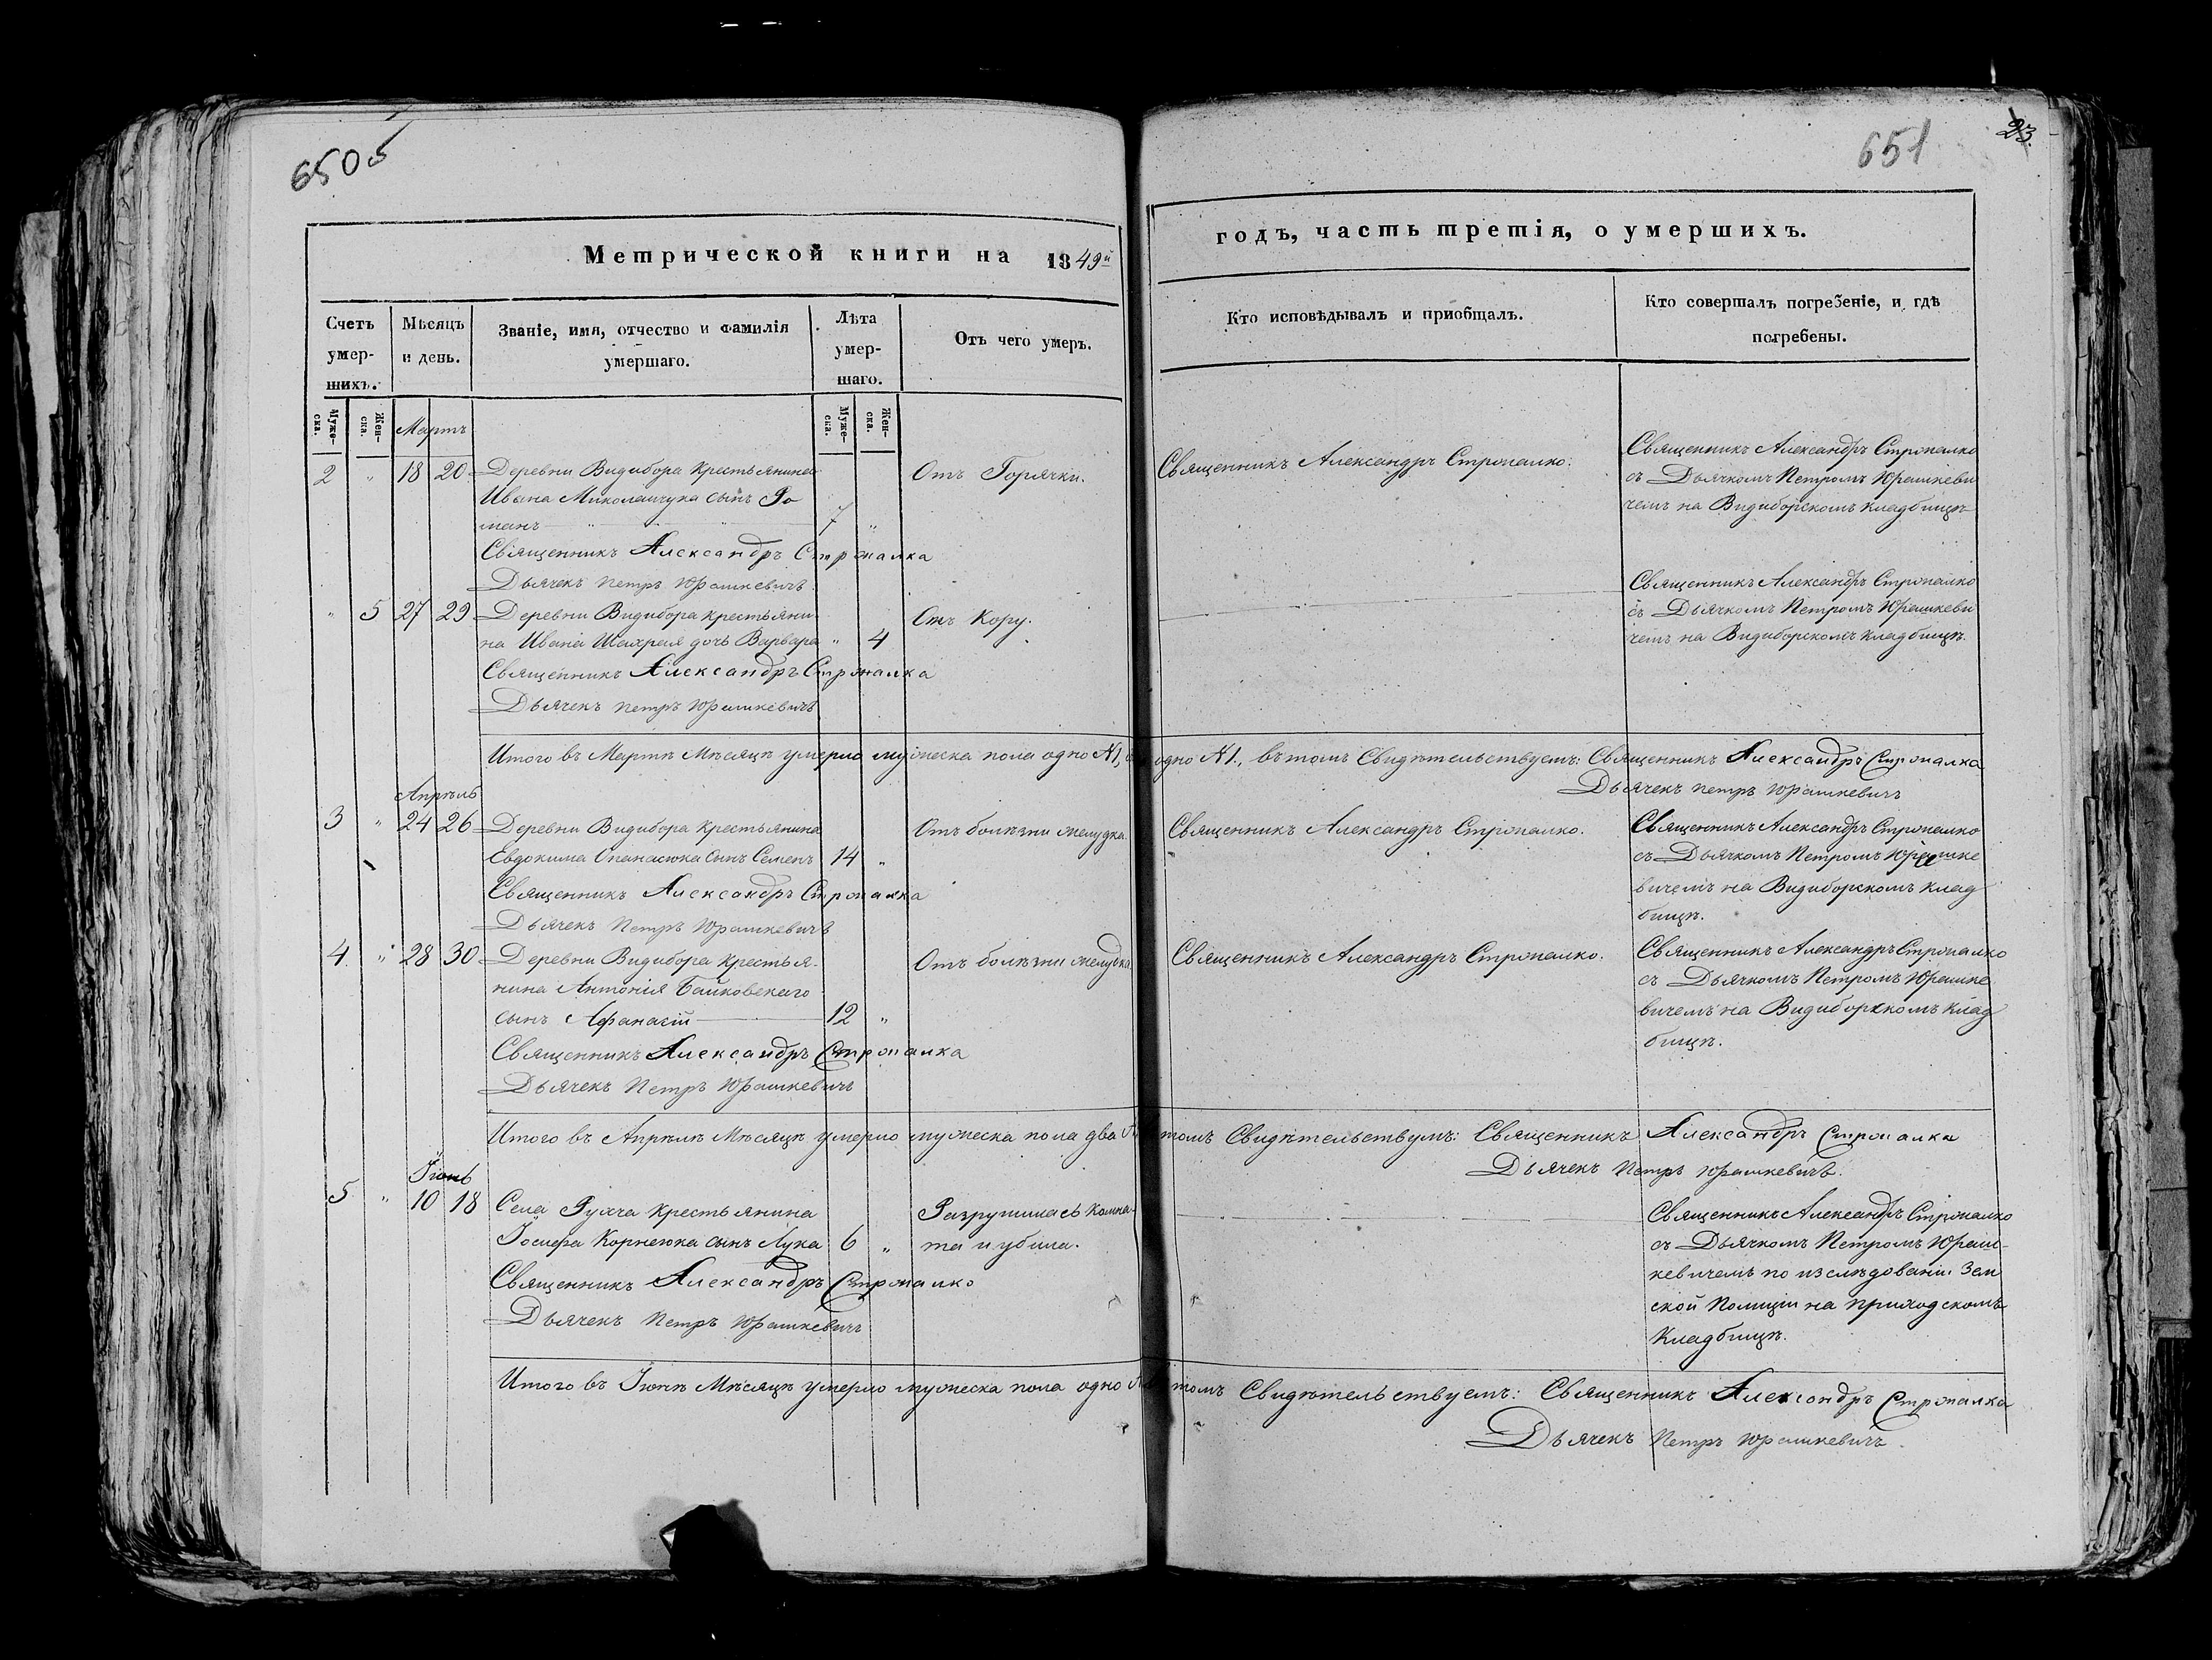 650 об
651
23.
Метрической книги на 1849й
годъ, часть третія, о умершихъ.
Счетъ умер-шихъ.
Мѣсяцъ и день.
Званіе, имя, отчество и фамилія умершаго.
Лѣта умер-шаго.
Отъ чего умеръ.
Кто исповѣдывалъ и приобщалъ.
Кто совершалъ погребеніе, и гдѣ погребены.
Муже-ска.
Жен-ска.
Муже-ска.
Жен-ска.
Мартъ
2 " 18 20 Деревни Видибора крестьянина
Ивана Миколайчука сынъ Ро
манъ 7 "
Отъ Горячки.
Священникъ Александръ Стропалко.
Священникъ Александръ Стропалко
съ Дьячкомъ Петромъ Юрашкеви
чемъ на Видиборскомъ кладбищѣ
Священникъ Александръ Стропалка
Дьячекъ Петръ Юрашкевичъ
" 5 27 29 Деревни Видибора крестьяни
на Ивана Шахрая дочь Варвара " 4
Отъ Кору.
Священникъ Александръ Стропалко
съ Дьячкомъ Петромъ Юрашкеви
чемъ на Видиборскомъ кладбищѣ.
Священникъ Александръ Стропалка
Дьячекъ Петръ Юрашкевичъ
Итого въ Мартѣ Мѣсяцѣ умерло мужеска пола одно №1, одно №1., въ томъ Свидѣтельствуемъ: Священникъ Александръ Стропалка
Дьячекъ Петръ Юрашкевичъ
Апрѣль
3 " 24 26 Деревни Видибора крестьянина
Евдокима Опанасюка сынъ Семенъ 14 "
Отъ болѣзни желудка.
Священникъ Александръ Стропалко.
Священникъ Александръ Стропалко
съ Дьячкомъ Петромъ Юрашке
вичемъ на Видиборскомъ клад
бищѣ.
Священникъ Александръ Стропалка
Дьячекъ Петръ Юрашкевичъ
4. " 28 30 Деревни Видибора крестья-
нина Антонія Байковскаго
сынъ Афанасій 12 "
Отъ болѣзни желудка
Священникъ Александръ Стропалко.
Священникъ Александръ Стропалко
съ Дьячкомъ Петромъ Юрашке
вичемъ на Видиборскомъ клад
бищѣ.
Священникъ Александръ Стропалка
Дьячекъ Петръ Юрашкевичъ
Итого въ Апрѣлѣ Мѣсяцѣ умерло мужеска пола два томъ Свидѣтельствуемъ: Священникъ Александръ Стропалка
Дьячекъ Петръ Юрашкевичъ.
Іюнь
5 " 10 18 Села Рухча крестьянина
Іосифа Корнеюка сынъ Лука 6 "
Разрушилась комна-
та и убила.
Священникъ Александръ Стропалко
съ Дьячкомъ Петромъ Юраш-
кевичемъ по изслѣдованіи Зем
ской Полиціи на приходскомъ
Кладбищѣ.
Священникъ Александръ Стропалко
Дьячекъ Петръ Юрашкевичъ
Итого въ Іюнѣ Мѣсяцѣ умерло мужеска пола одно томъ Свидѣтельствуемъ: Священникъ Александръ Стропалка
Дьячекъ Петръ Юрашкевичъ.